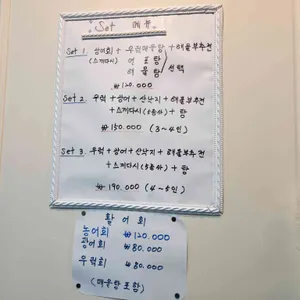 Set 메뉴
Set 1. 광어회 + 우럭매운탕 + 해물부추전
(스끼다시) 어 포탕
해물탕 / 선택
₩ 120.000
Set 2. 우럭 + 광어 + 산낙지 + 해물부추전
+ 스끼다시(5종류) + 탕
₩ 150.000 (3~4인)
Set 3. 우럭 + 광어 + 산낙지 + 해물부추전
+ 스끼다시(5종류) + 탕
₩ 190.000 (4~5인)
활 어 회
농어회 ₩ 120.000
광어회 ₩ 80.000
우럭회 ₩ 80.000
(매운탕포함)